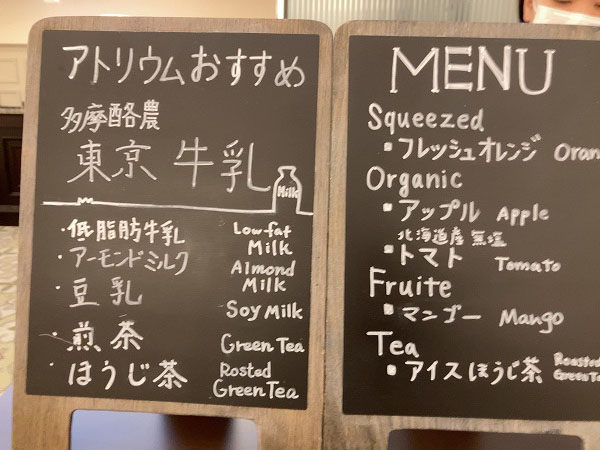 アトリウムおすすめ
多摩酪農
東京 牛乳
Milk
・低脂肪牛乳 Low-fat Milk
・アーモンドミルク Almond Milk
・豆乳 Soy Milk
・煎茶 Green Tea
・ほうじ茶 Rosted Green Tea
MENU
Squeezed
▪フレッシュオレンジ Oran
Organic
▪アップル Apple
北海道産 無塩
▪トマト Tomato
Fruite
▪マンゴー Mango
Tea
▪アイスほうじ茶 Roasted Green Te